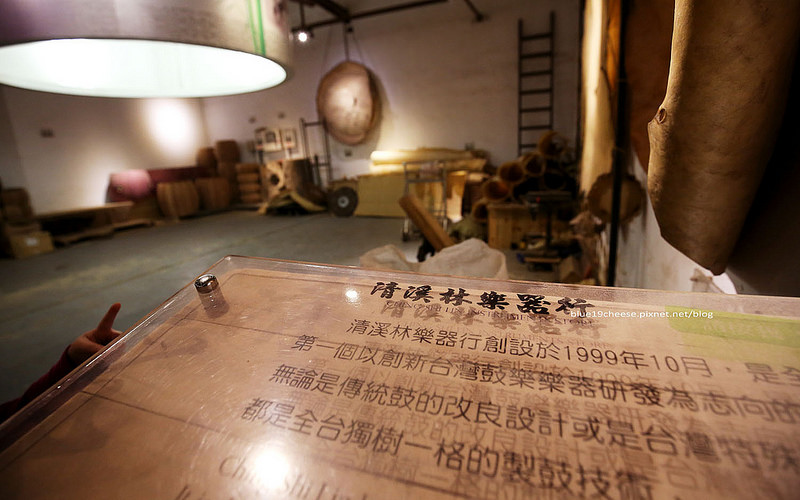 清溪林樂器行
blue19cheese.pixnet.net/blog
清溪林樂器行創設於1999年10月，是全
第一個以創新台灣鼓樂樂器研發為志向的
無論是傳統鼓的改良設計或是台灣特殊
都是全台獨樹一格的製鼓技術